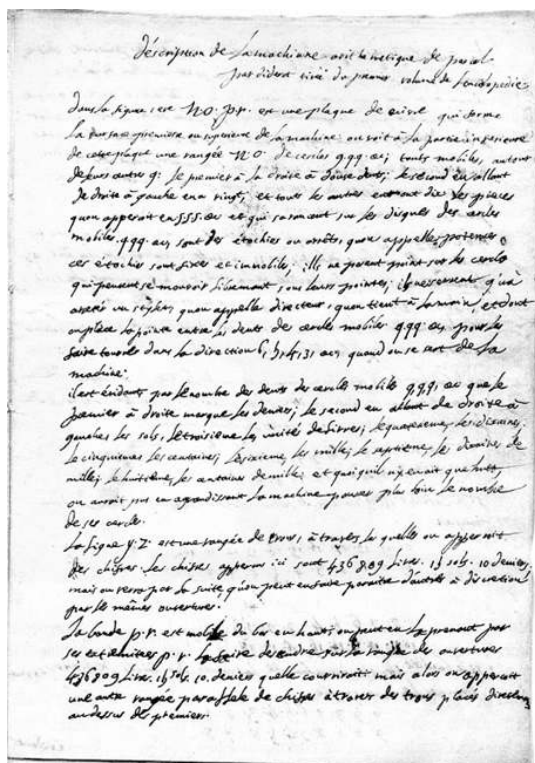 déscription de la machinne arithmetique de pascal
par diderot tiré du premier volume de lenciclopedie
dans la figure 1ere N.O. p.r. est une plaque de cuivre qui forme
la surface premiere ou superieure de la machine. on voit à la partie inferieure
de cette plaque une rangée N.O. de cercles q.q.q. &c, touts mobiles, autour
de leurs centres q. le premier à la droite à douse dents; le second en allant
de droite à gauche en a vingt; et touts les autres en ont dix. les pieces
quon apperoit en S.S.S. &c et qui savancent sur les disques des cercles
mobiles. q.q.q. &c, sont des étochios ou arrêts, quon appelle potences.
ces étochios sont fixes et immobiles; ills ne posent point sur les cercles
qui peuvent se mouvoir librement sous leurs pointes; ils ne servent qu'à
arreter un stylet, quon appelle directeur, quon tient à la main, et dont
on place la pointe entre les dents des cercles mobiles q.q.q. &c, pour les
faire tourner dans la direction 6, 5, 4, 3, &c, quand on se sert de la
machine.
il est évident par le nombre des dents des cercles mobiles q.q.q, &c que le
premier à droite marque les deniers; le second en allant de droite à
gauche, les sols, le troisieme les unités de livres; le quatrieme, les dixaines;
le cinquieme les centaines; le sixieme, les mille; le septieme, les dixaines de
mille; le huitieme, les centaines de mille; et quoiquil ny en ait que huit,
on auroit pu en agrandissant la machine pousser plus loin le nombre
de ses cercles.
la ligne y.Z. est une rangée de trous, à travers les quelles on apperoit
des chifres. les chifres apperus ici sont 436809 livres. 15 sols. 10 deniers.
mais on verra par la suite qu'on peut en faire paroitre d'autres à discretion
par les mêmes ouvertures.
la bande p.r. est mobile du bas en haut; on peut en la prenant par
ses extremites p.r. la faire descendre sur la rangée des ouvertures
436809 livres. 15 sols. 10. deniers quelle couvriroit mais alors on apperoit
une autre rangée parallele de chifres à travers des trous placés directemt
au dessus des premiers.